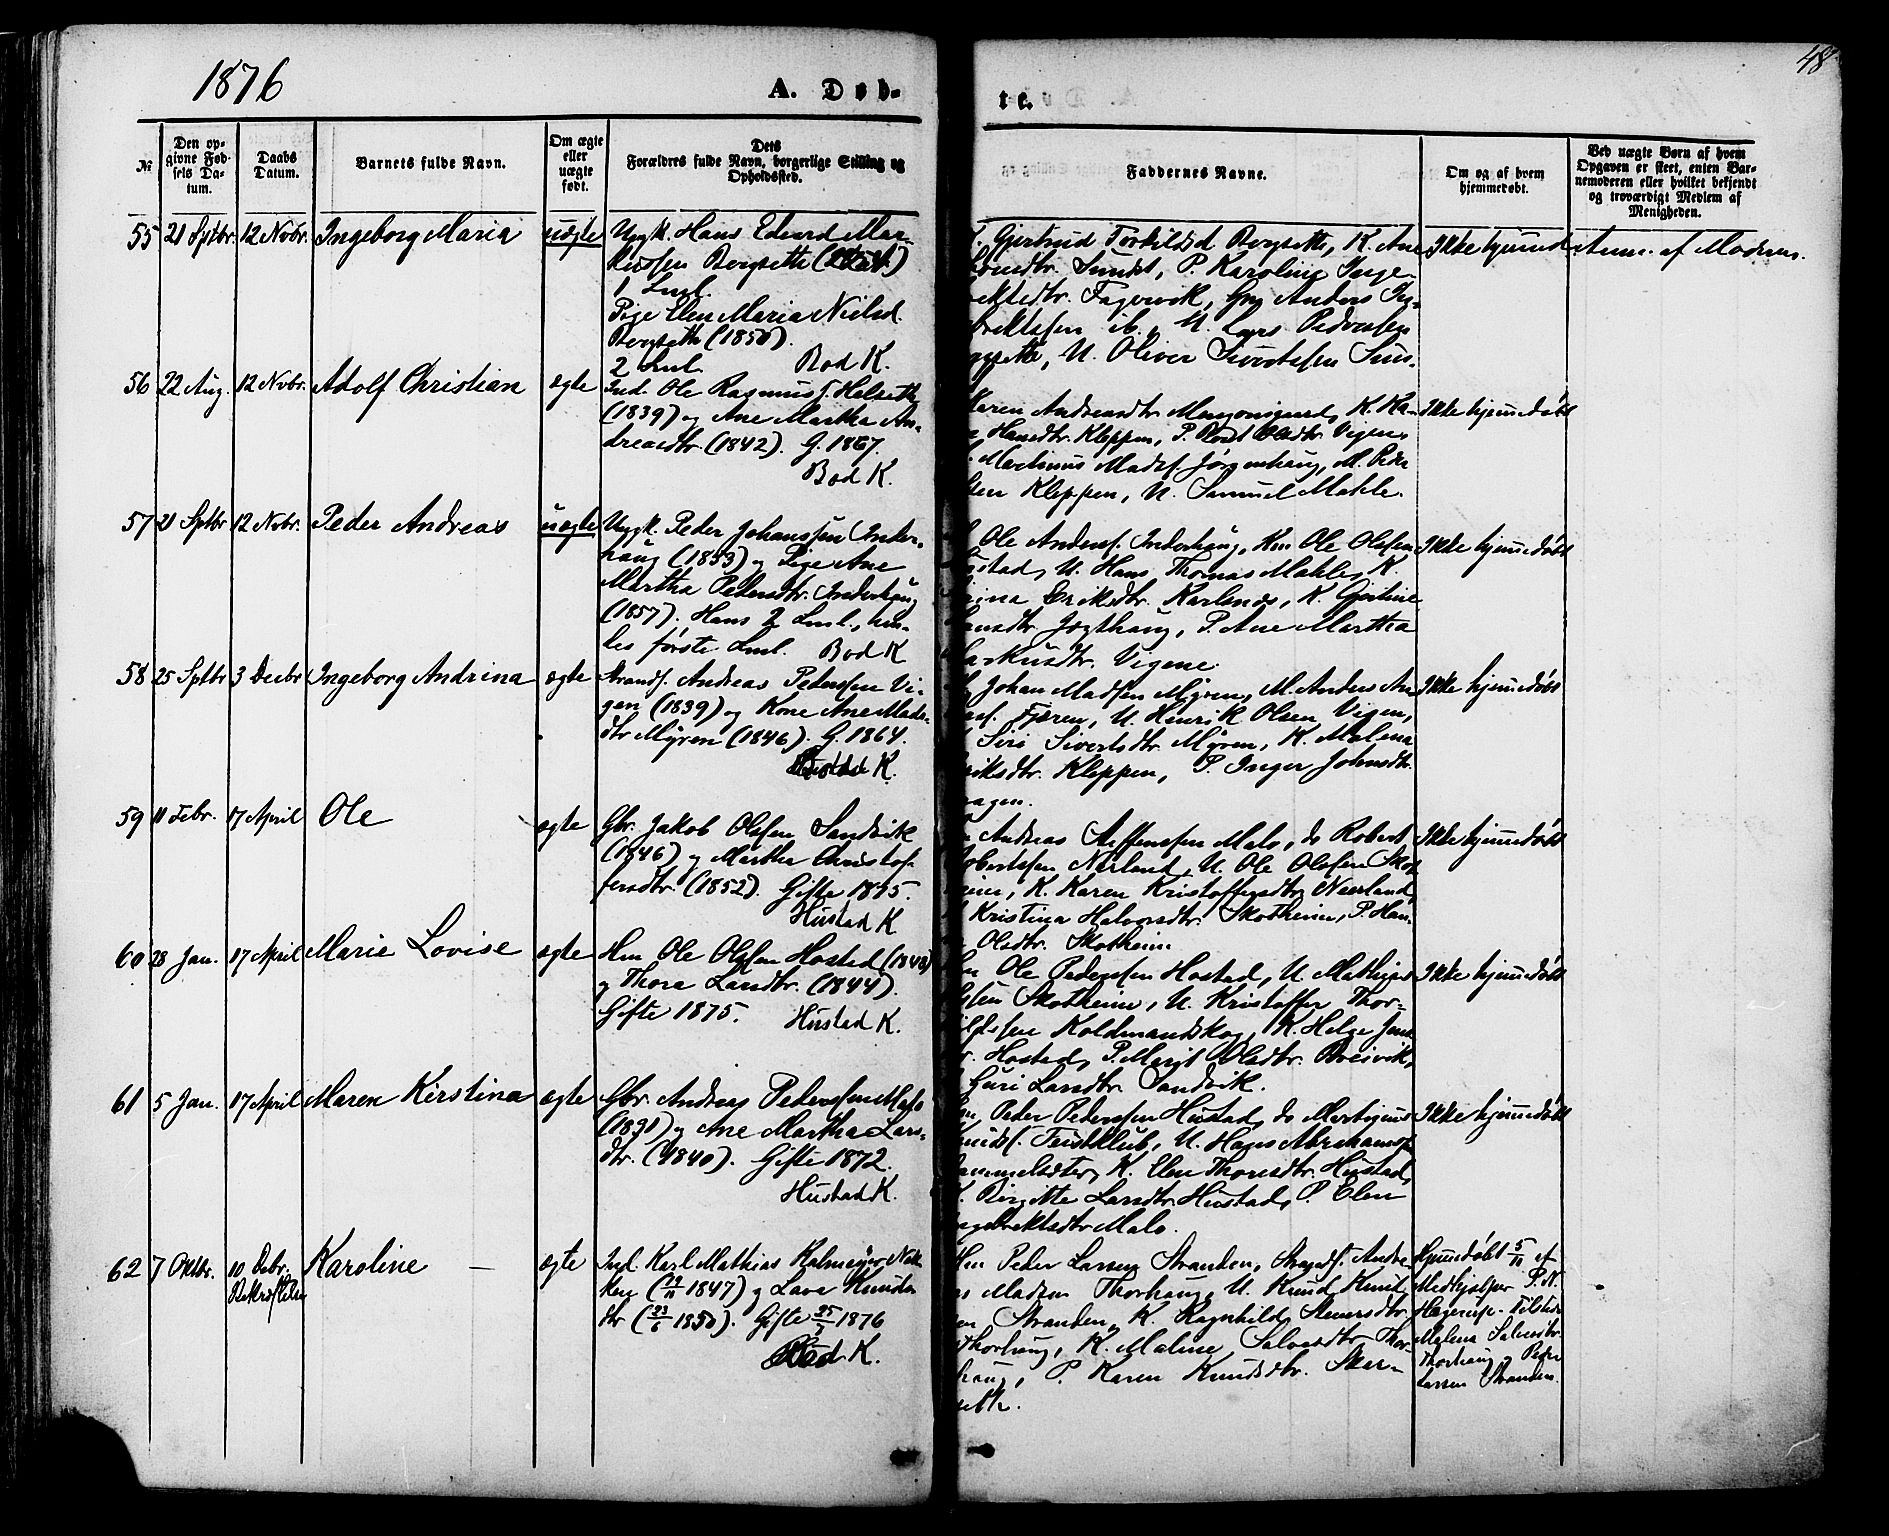 1876
A. Døb-
te.
48
№
Den op-
givne Fød-
sels Da-
tum.
Daabs
Datum.
Barnets fulde Navn.
Om ægte
eller
uægte
født.
Dets
Forældres fulde Navn, borgerlige Stilling og
Opholdssted.
Faddernes Navne.
Om og af hvem
hjemmedøbt.
Ved uægte Børn af hvem
Opgaven er skeet, enten Bar-
nemoderen eller hvilket bekjendt
og troværdigt Medlem af
Menigheden.
55 21 Sptbr. 12 Novbr. Ingeborg Maria uægte
Ungk. Hans Edvard Mar-
kussen Bergsette
1 Lml.
Pige Elen Maria Nielsd.
Bergsette (1850).
2 Lml. Bod K.
Gjertrud Torkildsd Bergsette, K. Ane
Sundst, P. Karoline Inge-
Fagervik, Gm Anders In-
brektssen ib., U. Lars Pederssen
U. Oliver Sivertssen Sun-
Ikke hjemmed.
Anm. af Moderen.
56 22 Aug. 12 Novbr. Adolf Christian ægte
Ind. Ole Rasmuss. Helsette
(1839) og Ane Martha An-
dreasdtr (1842). G. 1867.
Bod K.
Karen Andreasdtr K. Ka-
Hansdtr. Kleppen, P. Olsdtr. Vigen,
Martinus Madss. Jørgenhaug, M. Peder
Kleppen, U. Samuel Mahle.
Ikke hjemmedøbt
57 21 Sptbr 12 Novbr. Peder Andreas uægte
Ungk. Peder Johanssen Inder-
haug (1853) og Pige Ane
Martha Pedersdtr. Inderhaug
(1857). Hans 2 Lml., hen-
des første Lml. Bod K
Ole Anderss. Inderhaug, Km Ole Olssen
U. Hans Thomas Mahle, K.
Eriksdtr. Karlsnes, K. Gjertine
Jøgthaug, P. Ane Martha
Markusdtr. Vigene.
Ikke hjemmedøbt
58 25 Sptbr 3 Decbr Ingeborg Andrina ægte
Strands. Andreas Pederssen Vi-
gen (1839) og Kone Ane Mads-
dtr Myren (1846). G. 1864.
K.
Johan Madssen Myren, M. Anders An-
Fjæren, U. Henrik Olsen Vigen,
Siri Sivertsdtr. Myren, K. Malena
Eriksdtr. Kleppen, P. Inger Johnsdtr.
Ikke hjemmedøbt
59 11 Febr. 17 April Ole ægte
Gbr. Jakob Olssen Sandvik
(1846) og Martha Christof-
fersdtr. (1852). Gifte 1875.
Hustad K
Andreas Steffenssen Malo, do Robert
Robertssen Nerland, U. Ole Olssen Skot-
heim, K. Karen Kristoffersdtr Neerland,
Kristina Halvorsdtr. Skotheim, P. Han-
Olsdtr. Skotheim.
Ikke hjemmedøbt
60 28 Jan. 17 April Marie Lovise ægte
Hm Ole Olssen Hostad (1848)
og Thora Larsdtr. (1844).
Gifte 1875. Hustad K.
Ole Pederssen Hostad, U. Mathias
Skotheim, U. Kristoffer Thor-
Koldmandskog, K. Helge Jens-
Hostad, P. Marit Olsdtr. Breivik,
Guri Larsdtr. Sandvik.
Ikke hjemmedøbt
61 5 Jan. 17 April Maren Kirstina ægte
Gbr Andreas Pederssen Malo
(1831) og Ane Martha Lars-
dtr. (1840). Gifte 1872.
Hustad K.
Peder Pederssen Hustad, do
U. Hans Abrahamss.
K. Elen Thoresdtr. Hustad,
Birgitte Larsdtr. Hustad, P. Elen
Ingebrektsdtr Malo.
Ikke hjemmedøbt
62 7 Oktbr. 10 Debr. Karoline — ægte
Bekræftelse
Ind. Karl Mathias Kalmeyer Nek-
ken 1847) og Lava Knuds-
dtr (23/6 1850). Gifte 1876
Bod K.
Hm Peder Larsen Stranden, Strands. Andre-
as Madsen Thorhaug, U. Knud Knud-
sen Stranden, K. Ragnhild
Thorhaug, K. Maline Salvesdtr. Thor-
haug, P. Karen Knudsdtr. Sker-
sette.
Hjemmedøbt 5/11 af
Medhjelper P. N.
Hagerup. Tilstede
Malena Salvesdtr.
Thorhaug og Peder
Larsen Stranden.